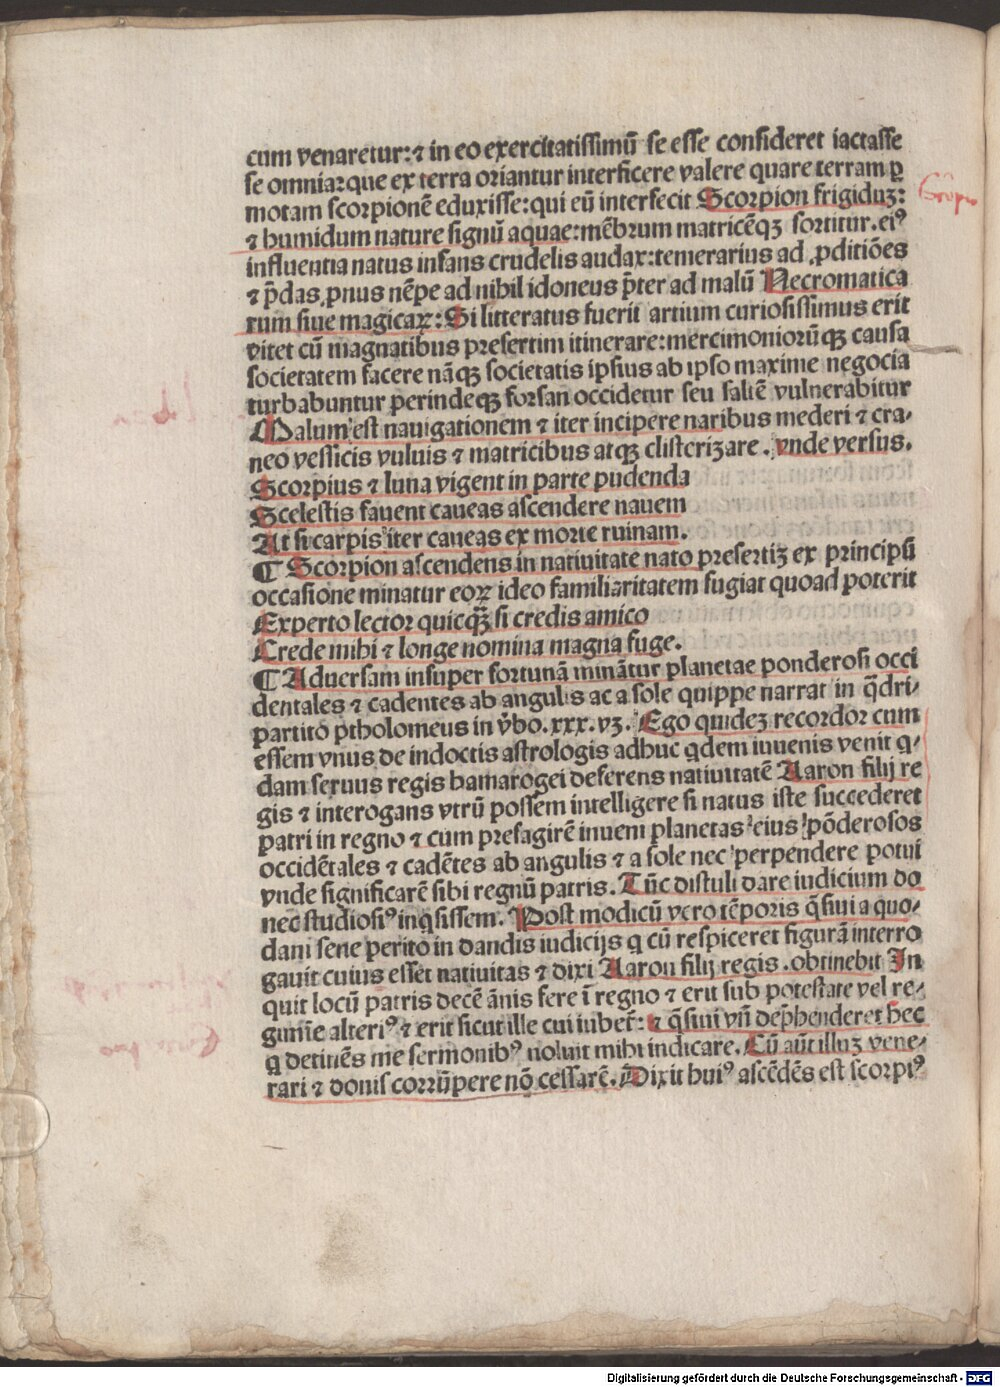 cum venaretur: ⁊ in eo exercitatissimū se esse consideret iactasse
se omnia: que ex terra oriantur interficere valere quare terram ꝑ
motam scorpionē eduxisse: qui eū interfecit Scorpion frigiduꝫ:
⁊ humidum nature signū aquae: mēbrum matricēqꝫ sortitur. eiꝰ
influentia natus infans crudelis audax: temerarius ad ꝓditiōes
⁊ p̄das ꝓnus nēpe ad nihil idoneus p̄ter ad malū Necromatica
rum siue magicaꝝ: Si litteratus fuerit artium curiosissimus erit
vitet cū magnatibus presertim itinerare: mercimoniorūqꝫ causa
societatem facere nāqꝫ societatis ipsius ab ipso maxime negocia
turbabuntur perindeqꝫ forsan occidetur seu saltē vulnerabitur
Malum est nauigationem ⁊ iter incipere naribus mederi ⁊ cra-
neo vessicis vuluis ⁊ matricibus atqꝫ clisterizare. vnde versus.
Scorpius ⁊ luna vigent in parte pudenda
Scelestis fauent caueas ascendere nauem
At si carpis iter caueas ex morte ruinam.
¶ Scorpion ascendens in natiuitate nato presertiꝫ ex principū
occasione minatur eoꝝ ideo familiaritatem fugiat quoad poterit
Experto lector quicq̄ꝫ si credis amico
Crede mihi ⁊ longe nomina magna fuge.
¶ Aduersam insuper fortunā minātur planetae ponderosi occi
dentales ⁊ cadentes ab angulis ac a sole quippe narrat in q̄dri-
partito ptholomeus in v̄bo. xxx. vꝫ. Ego quideꝫ recordor cum
essem vnus de indoctis astrologis adhuc qdem iuuenis venit q-
dam seruus regis hamarogei deferens natiuitatē Aaron filij re
gis ⁊ interogans vtrū possem intelligere si natus iste succederet
patri in regno ⁊ cum presagirē inueni planetas eius pōderosos
occidētales ⁊ cadētes ab angulis ⁊ a sole nec perpendere potui
vnde significarē sibi regnū patris. Tūc distuli dare iudicium do
nec studiosiꝰ inq̄sissem. Post modicū vero tēporis q̄siui a quo-
dam sene perito in dandis iudicijs q cū respiceret figurā interro
gauit cuius esset natiuitas ⁊ dixi Aaron filij regis. obtinebit In
quit locū patris decē ānis fere ī regno ⁊ erit sub potestate vel re-
gimīe alteriꝰ ⁊ erit sicut ille cui iubet̄: ⁊ q̄siui vn̄ dep̄henderet hēc
q detinēs me sermonibꝰ noluit mihi indicare. Cū aūt illuꝫ vene-
rari ⁊ donis corrūpere nō cessarē. Dixit huiꝰ ascēdēs est scorpiꝰ
Digitalisierung gefördert durch die Deutsche Forschungsgemeinschaft - DFG